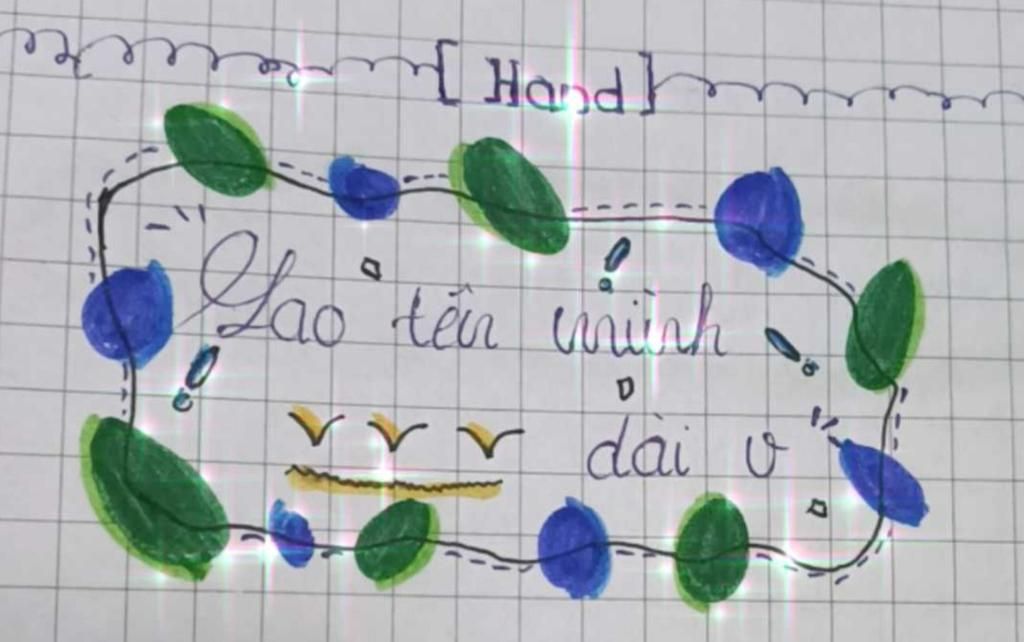 [ Hand ]
Sao tên mình
dài v